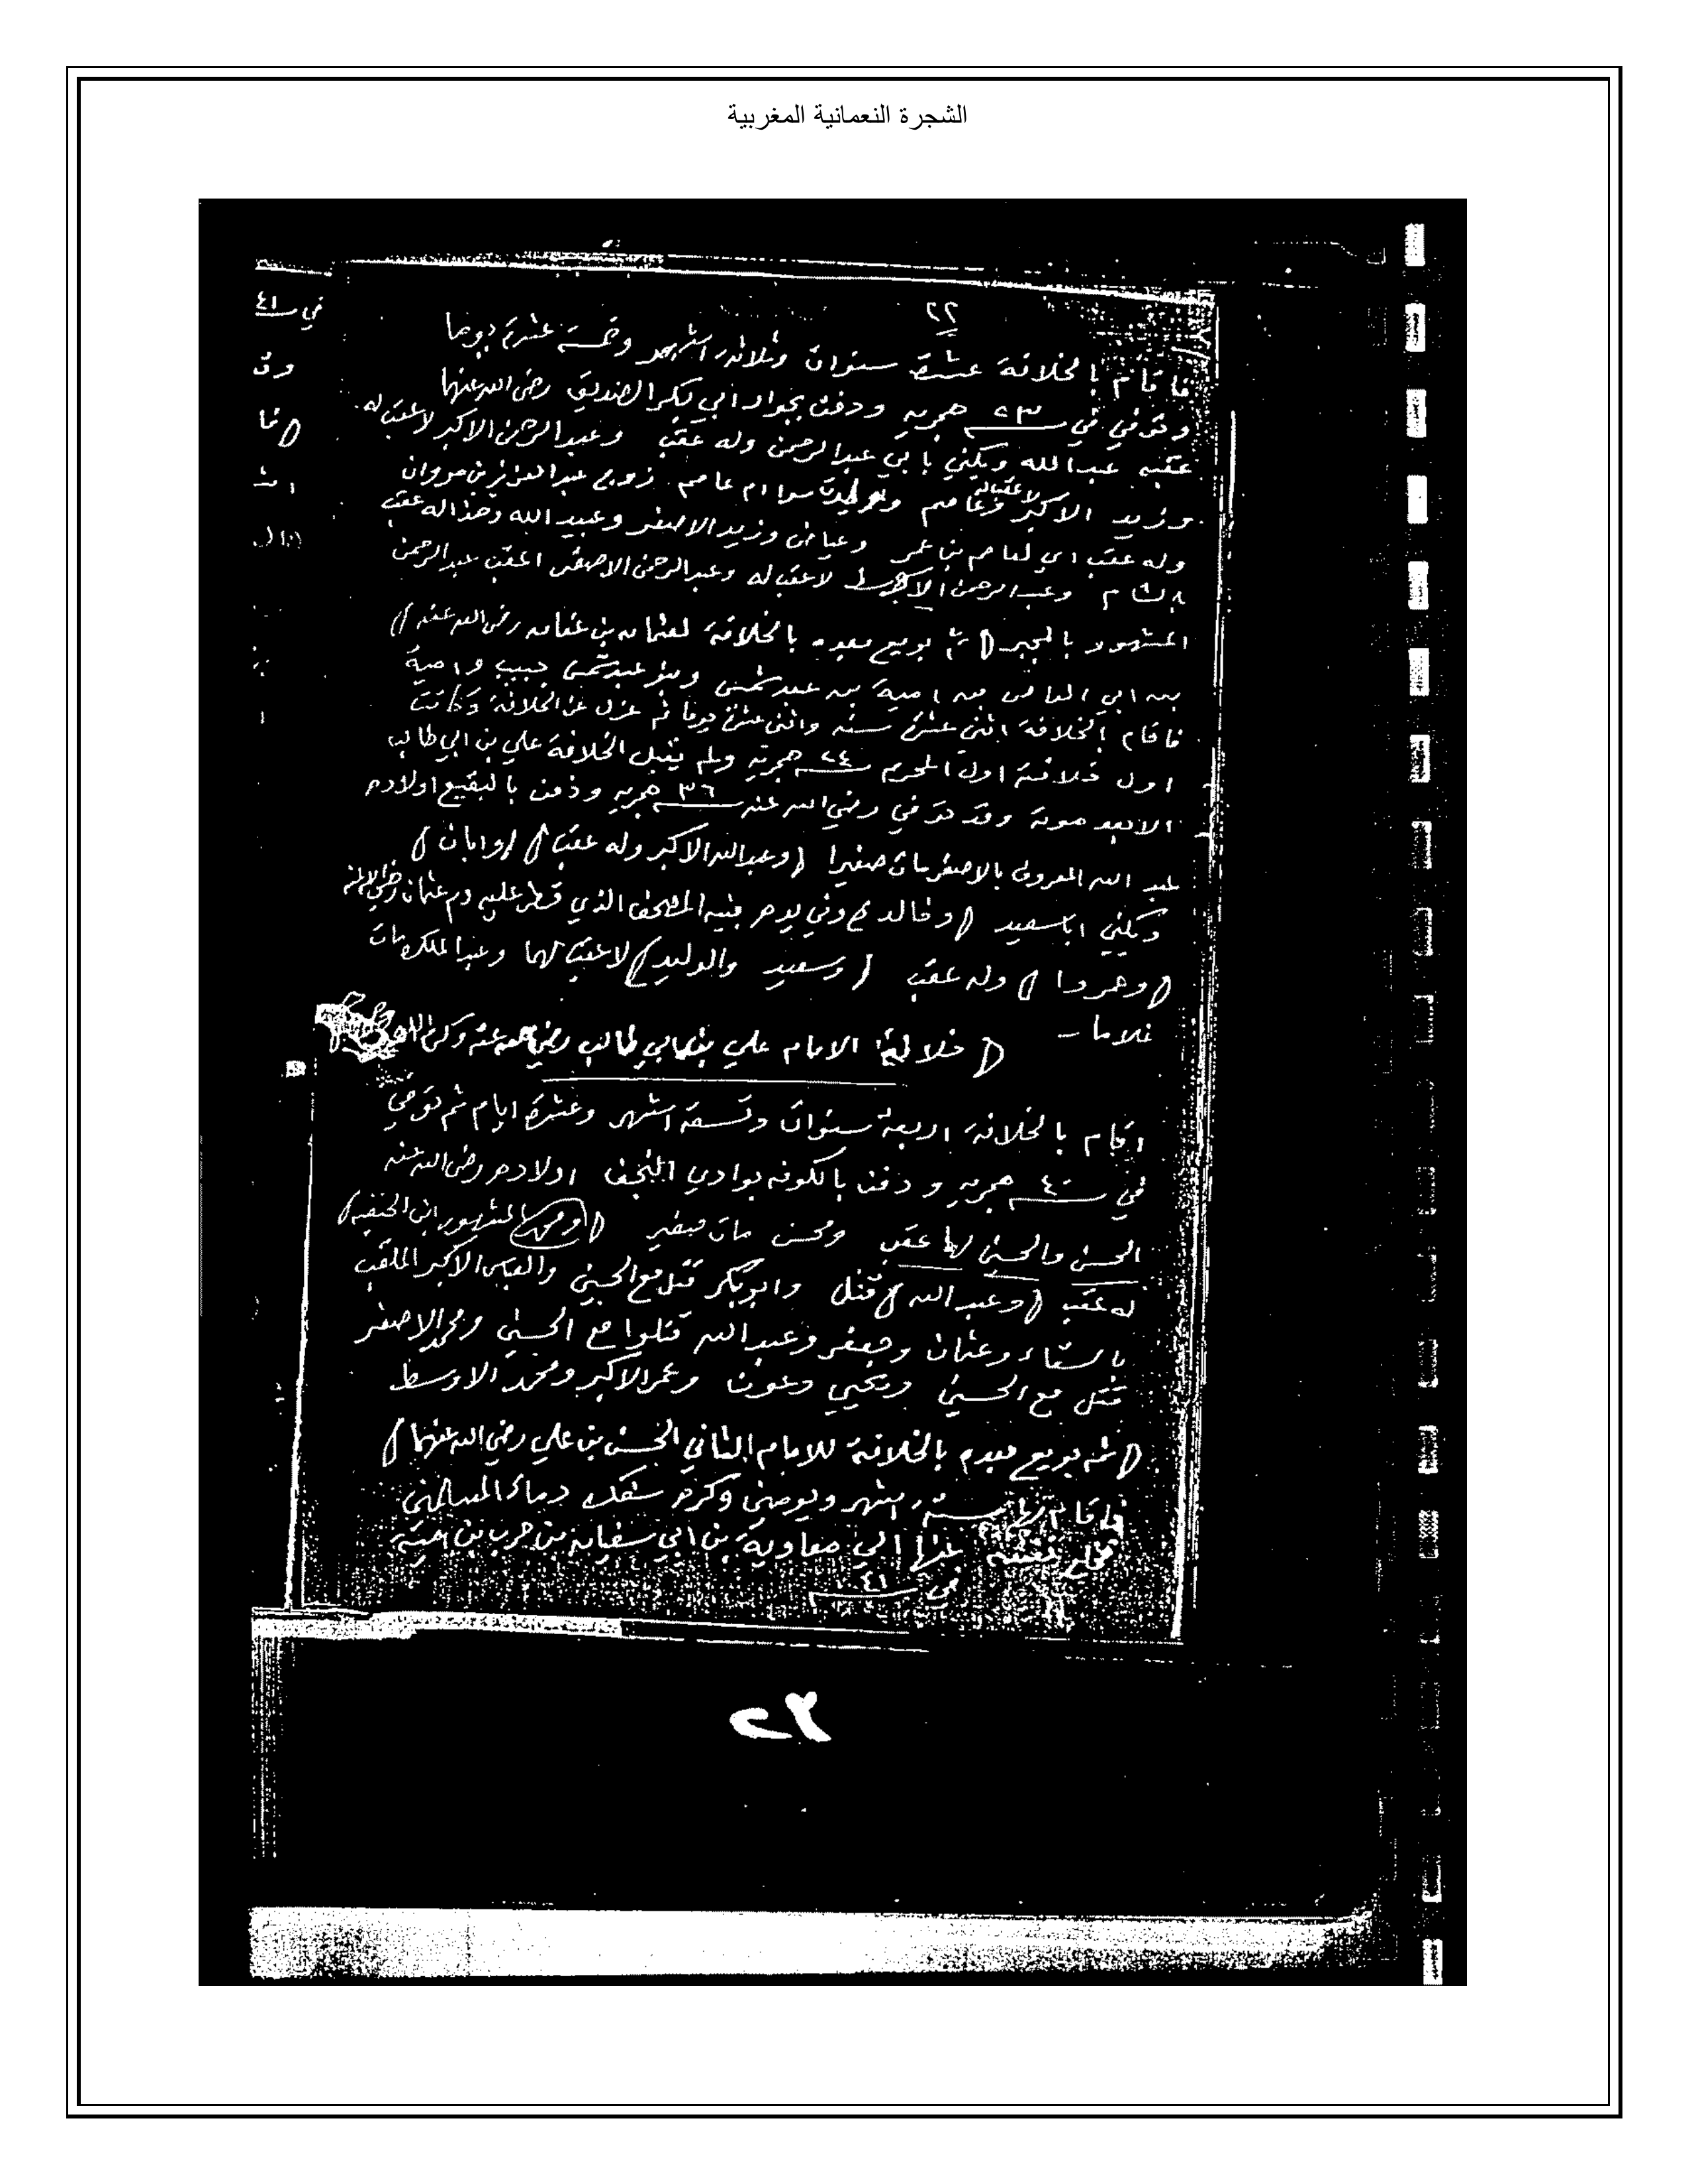 الشجرة النعمانية المغربية
٢٢
فاقام بالخلافة عشرة سنوات وثلاثة اشهر وخمسة عشرة يوما
وتوفي في سنة ٢٣ هجريه ودفن بجوار ابي بكر الصديق رضي الله عنهما
عقبه عبد الله ويكني بابي عبد الرحمن وله عقب وعبد الرحمن الاكبر لا عقب له
وزيد الاكبر لا عقب له وعاصم ام عاصم زوج عبد العزيز بن مروان
وله عقب اي لعاصم بن عمر وعياض وزيد الاصغر وعبيد الله وهذا له عقب
بالشام وعبد الرحمن الاوسط لا عقب له وعبد الرحمن الاصغر اعقب عبد الرحمن
المشهور بالمجبر ( ثم بويع بعده بالخلافة لعثمان بن عفان رضي الله عنه )
بن ابي العاص بن امية بن عبد شمس وبنو عبد شمس حبيب وامية
فاقام بالخلافة اثني عشرة سنه واثني عشرة يوما ثم عزل عن الخلافة وكانت
اول خلافته اول المحرم سنة ٢٤ هجرية ولم يقبل الخلافة علي بن ابي طالب
الا بعد موته وقد توفي رضي الله عنه سنة ٣٦ هجريه ودفن بالبقيع اولاده
عبد الله المعروف بالاصغر مات صغيرا ( وعبد الله الاكبر وله عقب ) ( وابان )
ويكني اباسعيد ( وخالد ) وفي يده بنيه المصحف الذي قطر عليه دم عثمان رضي الله عنه
( وعمروا ) وله عقب ( وسعيد والوليد ) لا عقب لهما وعبد الملك مات
غلاما –
( خلافة الامام علي بن ابي طالب رضي الله عنه وكرم الله
اقام بالخلافة اربعة سنوات وتسعة اشهر وعشرة ايام ثم توفي
في سنة ٤٠ هجريه ودفن بالكوفه بوادي النجف اولاده رضي الله عنه
الحسن والحسين لهما عقب ومحسن مات صغير ( ومحمد ) المشهور ابن الحنفيه )
له عقب ( وعبد الله ) قتل وابو بكر قتل مع الحسين والعباس الاكبر الملقب
بالسقاء وعثمان وجعفر وعبد الله قتلوا مع الحسين ومحمد الاصغر
قتل مع الحسين ويحيي وعون وعمر الاكبر ومحمد الاوسط
( ثم بويع بعده بالخلافة للامام الثاني الحسن بن علي رضي الله عنهما )
فاقام بها ستة اشهر ويومين وكره سفك دماء المسلمين
فخلع نفسه عنها الي معاوية بن ابي سفيان بن حرب بن امية
في سنة ٤١
في سنة ٤١
وت
( فا
٢٣